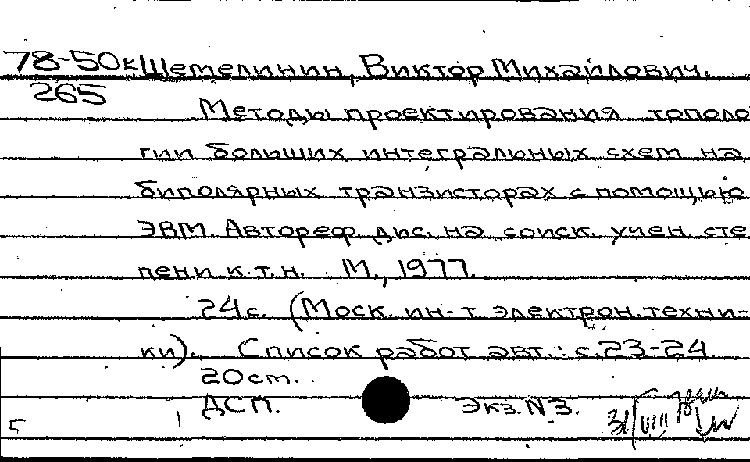 78-50к Щетелинин, Виктор Михайлович.
265
Методы проектирования тополо
гии больших интегральных схем на
биполярных транзисторах с помощью
ЭВМ. Автореф. дис. на соиск. учен. сте
пени к.т.н. М., 1977.
24с. (Моск. ин-т электрон. техни-
ки). Список работ авт.: с. 23-24
20 cm.
ДСП. Экз. №3.
31/VIII
5